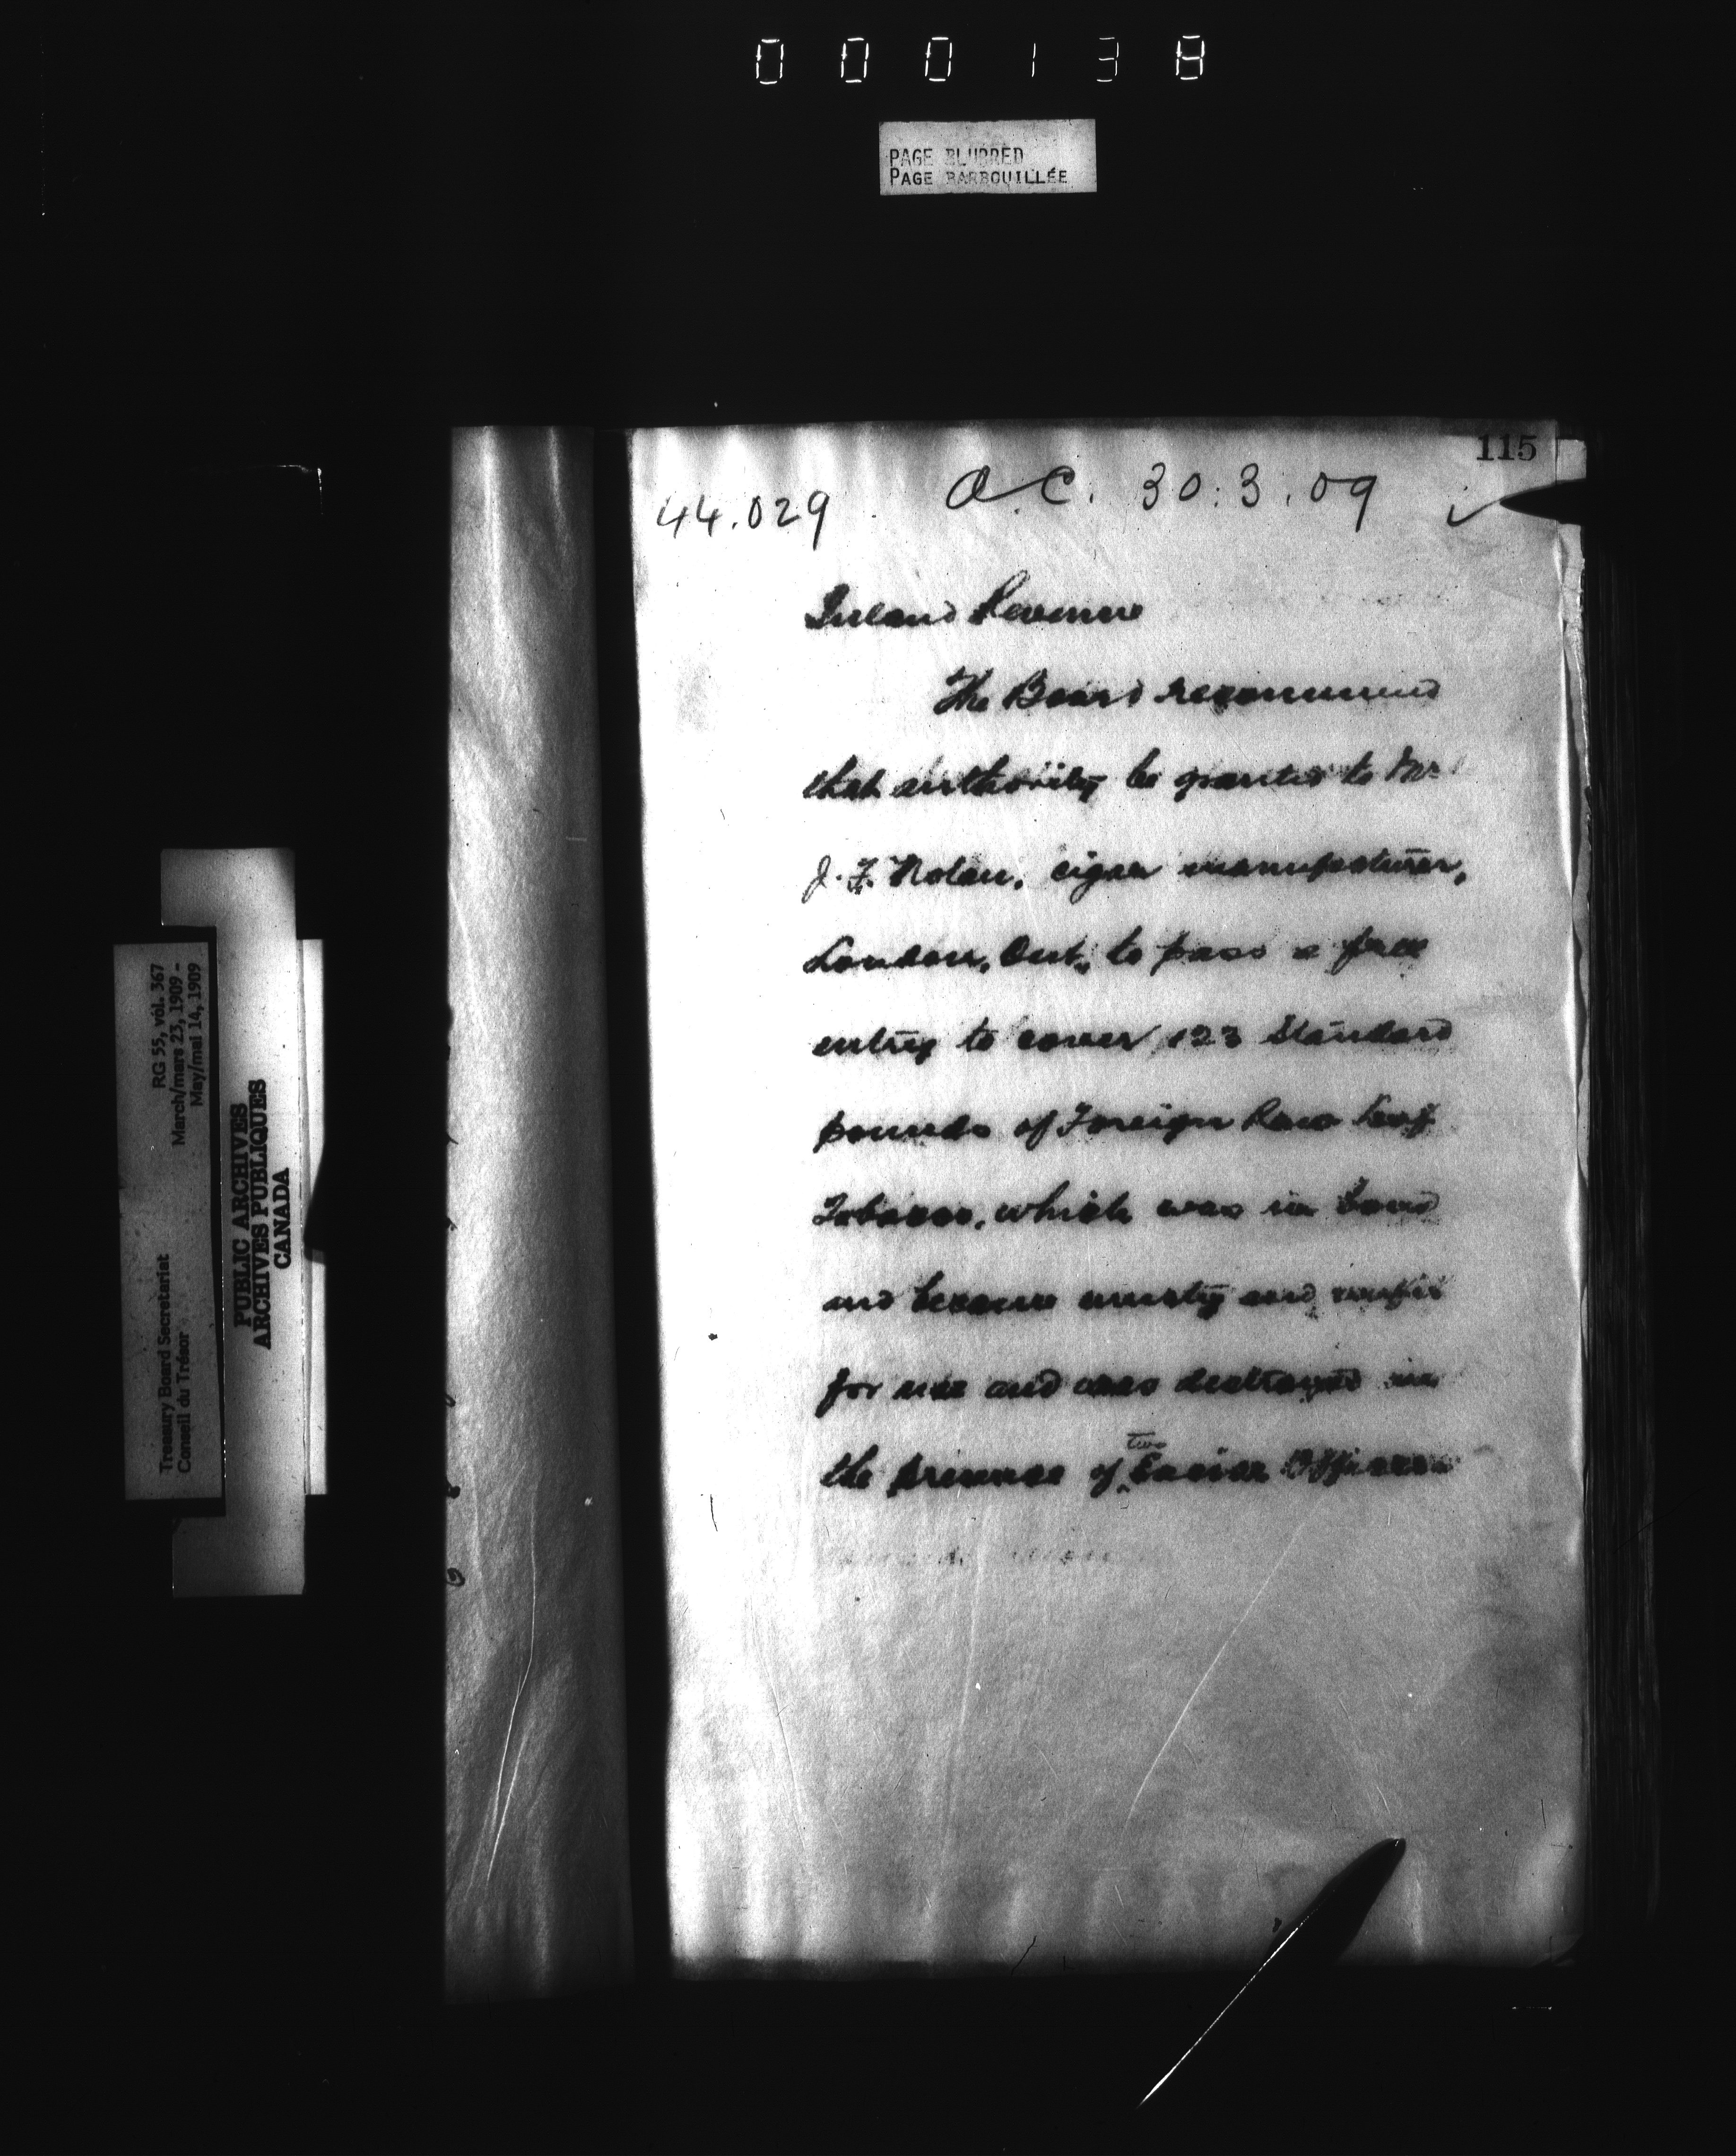 000138
PAGE BLURRED
PAGE BARBOUILLÉE
115
44.029 O.C. 30.3.09
Inland Revenue
The Board recommend
that authority be granted to Mr
J. F. Nolan, cigar manufacturer,
London, Ont, to pass a free
entry to cover 123 Standard
pounds of Foreign Raw Leaf
Tobacco, which was in bond
and became musty and unfit
for use and was destroyed in
the presence of two Excise Officers
Treasury Board Secretariat RG 55, vol. 367
Conseil du Trésor March/mars 23, 1909 -
May/mai 14, 1909
PUBLIC ARCHIVES
ARCHIVES PUBLIQUES
CANADA